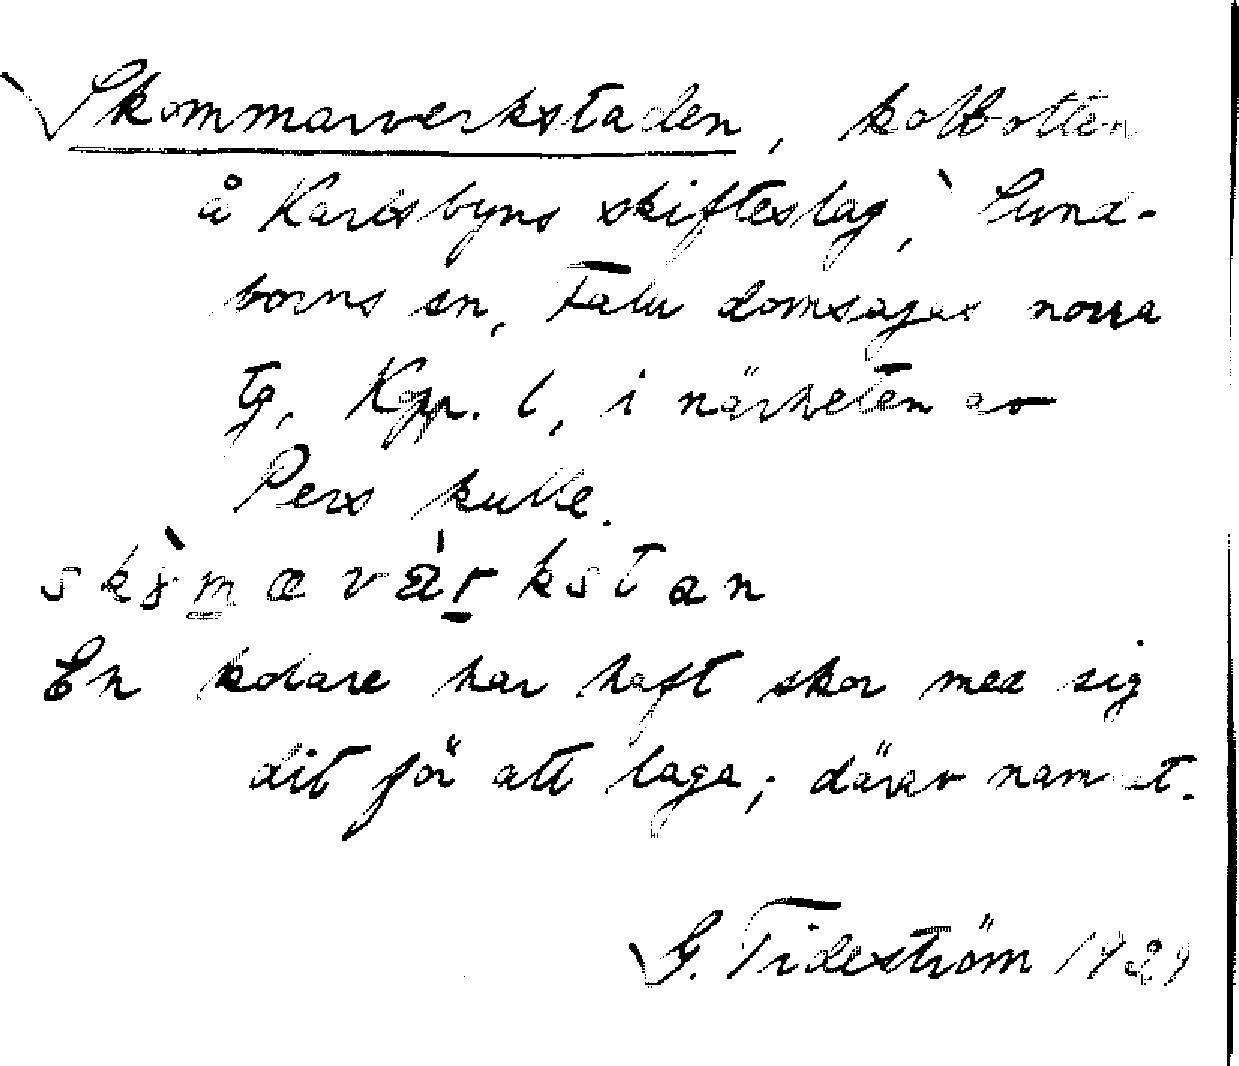 Skommarverkstaden, kolbotten
å Karlsbyns skifteslag, Sund-
borns sn, Falu domsagas norra
tg, Kpp. 6, i närheten av
Pers kulle.
En kolare har haft skor med sig
dit för att laga; därav namnet.
G. Tideström 1929